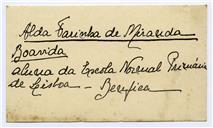 Alda Farinha de Miranda
Boavida
aluna da Escola Normal Primária
de Lisboa - Benfica